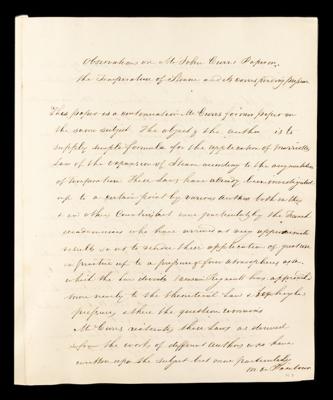 Observations on Mr John Curr's Paper on
the Temperature of Steam and its corresponding pressure
This paper is a continuation Mr Curr's former paper on
the same subject. The object of the author is to
supply simple formula for the application of Marriotte's
Law of the expansion of Steam according to the augmentation
of temperature. These Laws have already been investigated
up to a certain point by various Authors both in this
& in other Countries but more particularly by the French
academicians who have arrived at very approximate
results so as to render their application of questions
in practice up to a pressure of four atmospheres upon
which the law Regnault has approached
more nearly to the theoretical Law & for higher
pressures where the question
Mr Curr's reiterates these Laws as derived
from the works of different Authors who have
written upon the subject but more particularly
M. de Pambour